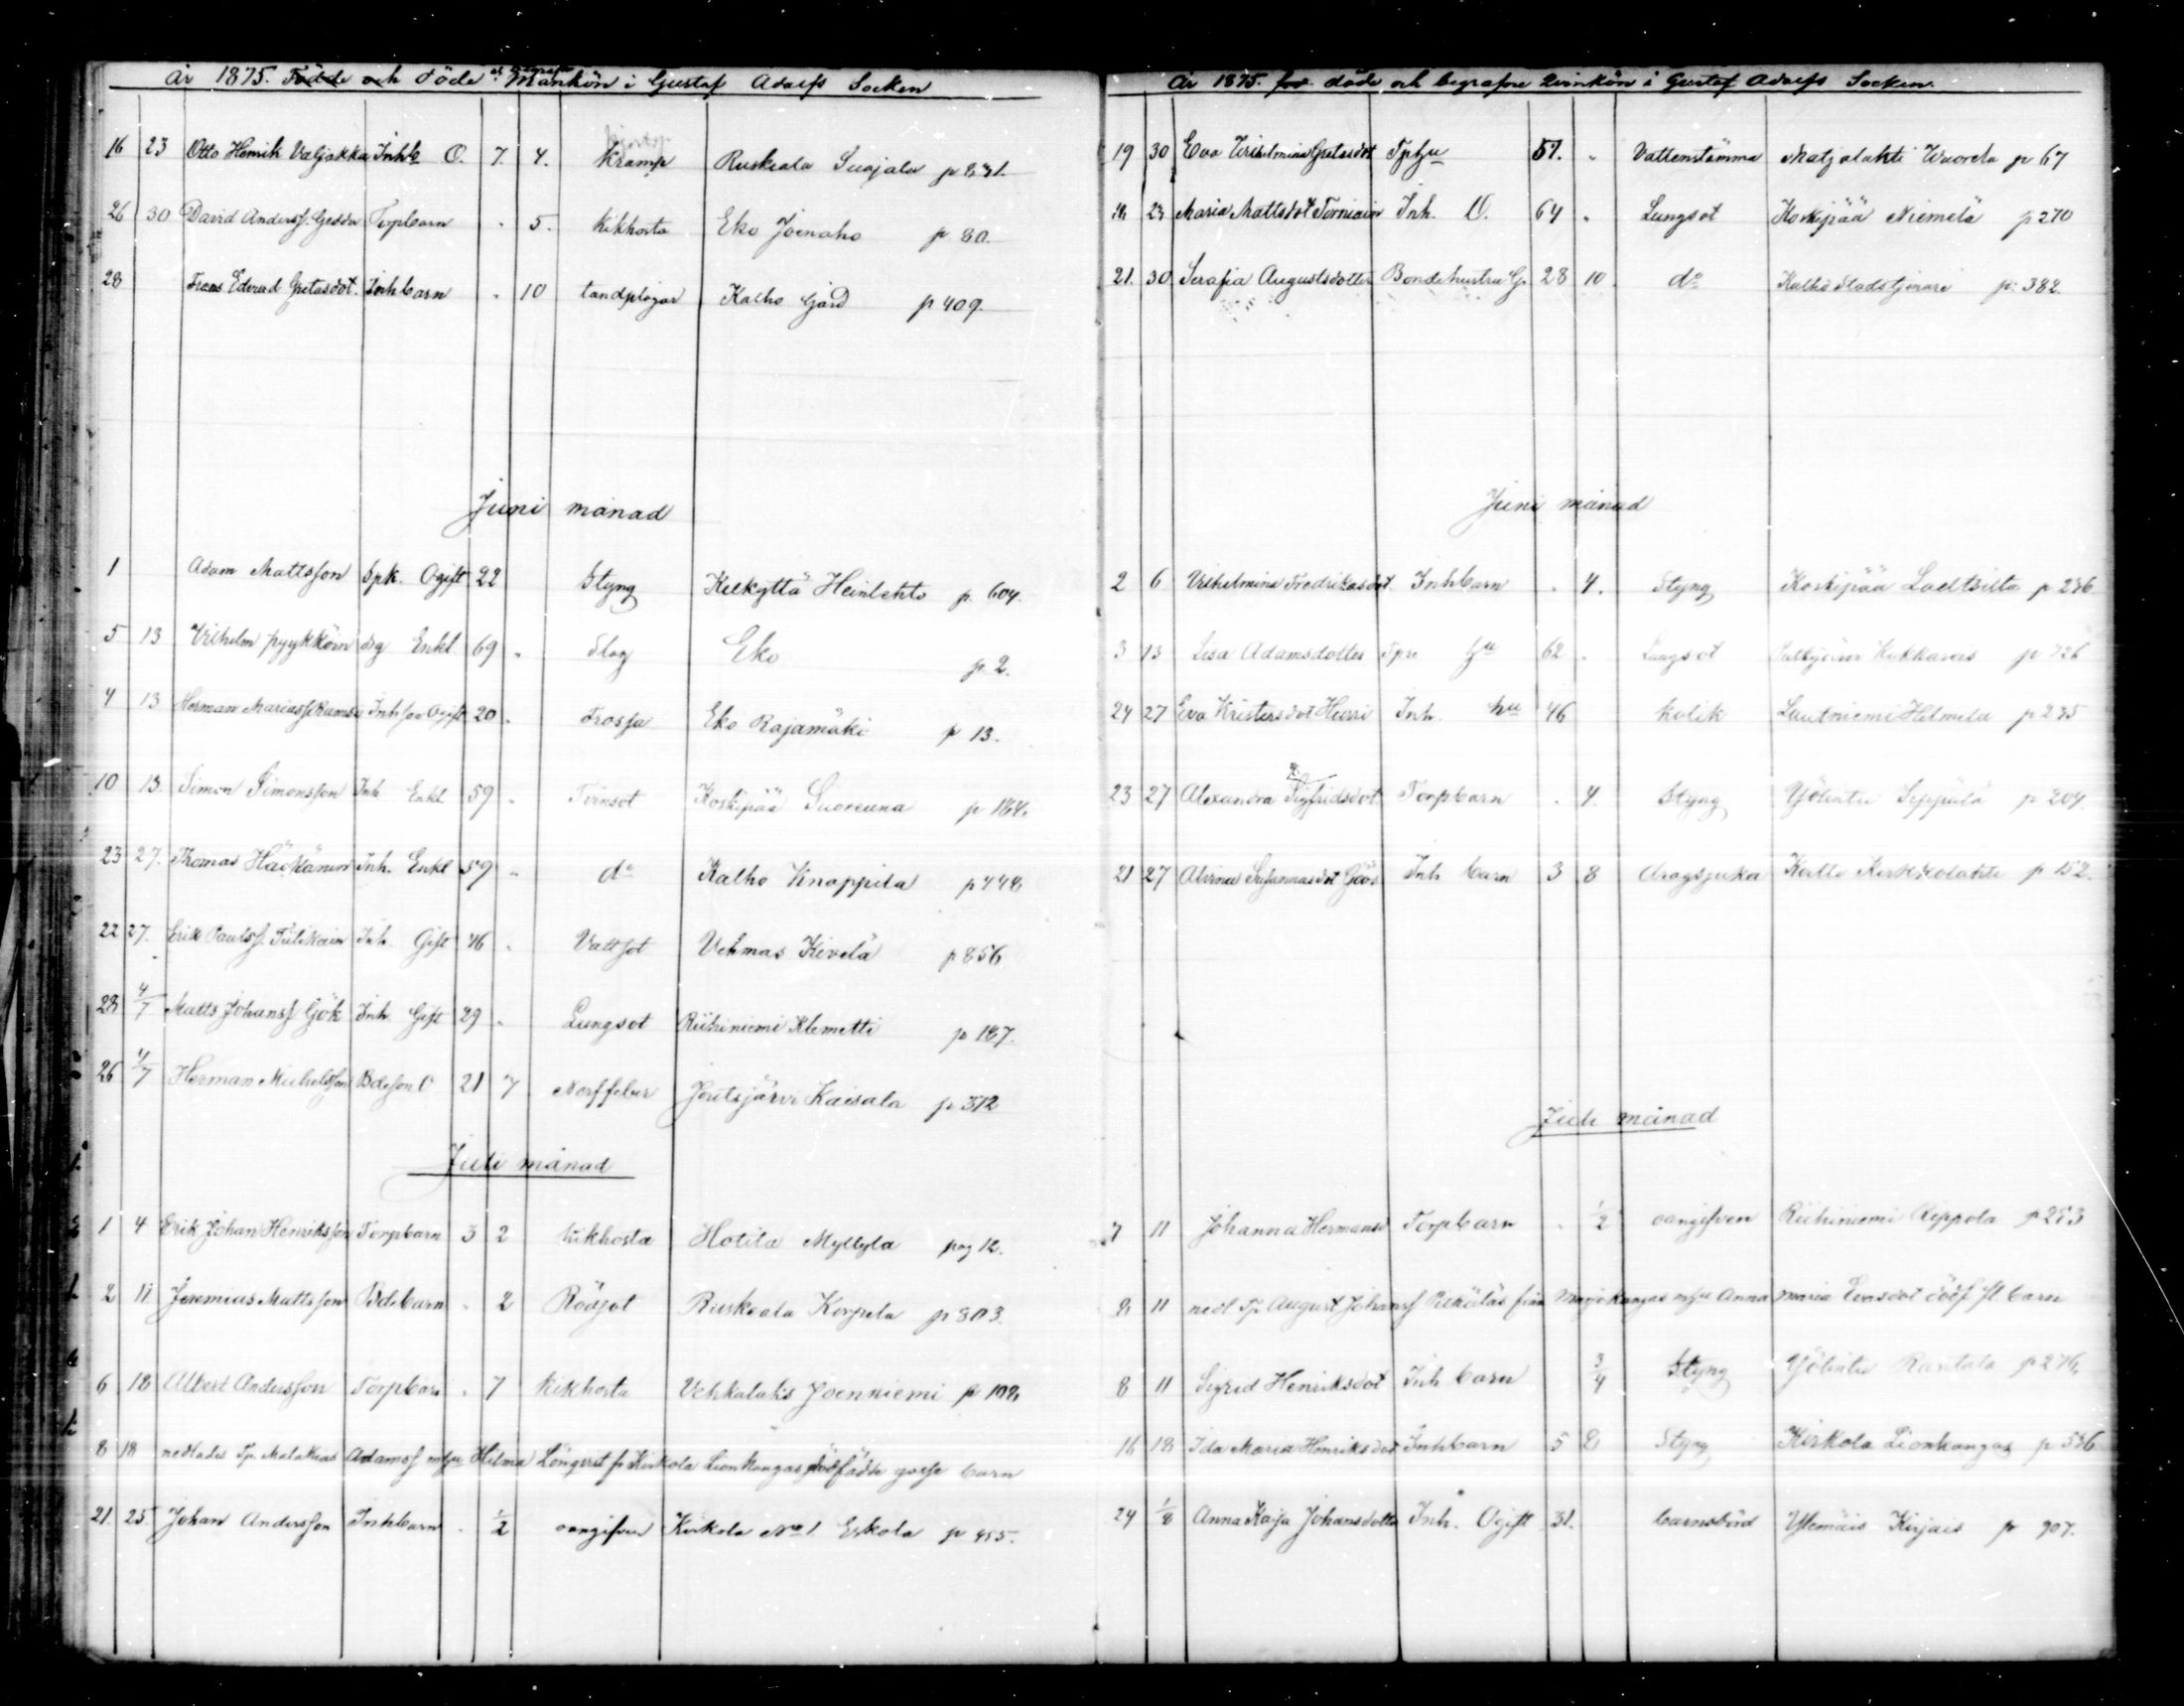 År 1875. Födde och döde och begrafne Mankön i Gustaf Adolfs Socken
16 23 Otto Henrik Valjakka Inhb O. 7. 4. Kramp Ruskeala Suojala p 831
26 30 David Andersf. Gedda Torpbarn " 5. Kikhosta Eko Joenaho p 80.
28 Frans Edvard Gretasdot. Inhbarn " 10 tandplågor Kalho Gård p 409.
Juni månad
1 Adam Mattsson Spk. Ogift 22 Styng Kelkyttä Heinlehto p. 604.
5 13 Vilhelm pyykköin drg Enkl 69 " Slag Eko p 2.
4 13 Herman Mariasf Ramsa Inhson Ogift 20 " Frossa Eko Rajamäki p 13.
10 13 Simon Simonsson Inh Enkl 59 " Tvinsot Koskipää Suoreuna p 164
23 27. Thomas Häckänen Inh. Enkl 59 " do Kalho Knappila p 448
22 27. Erik Paulsf. Tulikain Inh. Gift 46 " Vattsot Vehmas Kivelä p 856
28 4/7 Matts Johansf Gök Inh. Gift 29 " Lungsot Riihiniemi Klemetti p 187.
26 4/7 Herman Michelsson Bdeson O 21 7 Nerffeber Joutsjärvi Kaisala p 312
Juli månad
1 4 Erik Johan Henriksson Torpbarn 3 2 Kikhosta Hotila Myllylä pag 12.
2 11 Jeremias Mattsson Bdebarn " 2 Rödsot Ruskeala Korpela p 803.
6 18 Albert Andersson Torpbarn " 7 Kikhosta Vehkalaks Joenniemi p 108
8 18 nedlades Tp. Malakias Adamsf mhu Hilma Lönqvist fr Kirkola Lionkangas dödfödde gosse barn
21. 25 Johan Andersson Inhbarn " 1/2 oangifven Kirkola No 1 Erkola p 455.
År 1875. föd döde och begrafne Qvinkön i Gustaf Adolfs Socken.
19 30 Eva Vilhelmina Gretasdot Tphu 51. " Vattenstämma Matjalahti Wuorela p 67
18 23 Maria Mattsdot Torniain Inh. O. 64 " Lungsot Koskipää Niemelä p 270
21. 30 Serafia Augustsdotter Bondehustru G. 28 10. do Kalho Stadstjenare p. 382.
Juni månad
2 6 Vilhelmina Fredrikasdot Inhbarn " 4. Styng Koskipää p 236
3 13 Lisa Adamsdotter Tpr hu 62 " Lungsot p 726
24 27 Eva Kristersdot Hurri Inh. hu 46 Kolik Lautniemi Helmelä p 235
23 27 Alexandra Sigfridsdot Torpbarn " 4. Styng Yölintu Seppälä p 204.
21 27 Alvina Susannasdot Göös Inh barn 3 8 dragsjuka Kirkkolahti p 152.
Juli månad
7 11 Johanna Hermansd Torpbarn " 1/2 oangifven Riihiniemi Reppola p 283
8 11 nedl Tp August Johansf från Marjokangas mhu Anna Maria Evasdot dödf fl barn
8 11 Sigrid Henriksdot Inh barn 3/4 Styng Yölintu Rantala p 276
16 18 Ida Maria Henriksdot Inhbarn 5 2 Styng Kirkola Lionkangas p 536
24 1/8 Anna Kaja Johansdotter Inh. Ogift 31. barnsbörd Ylemäis Kirjais p 907.